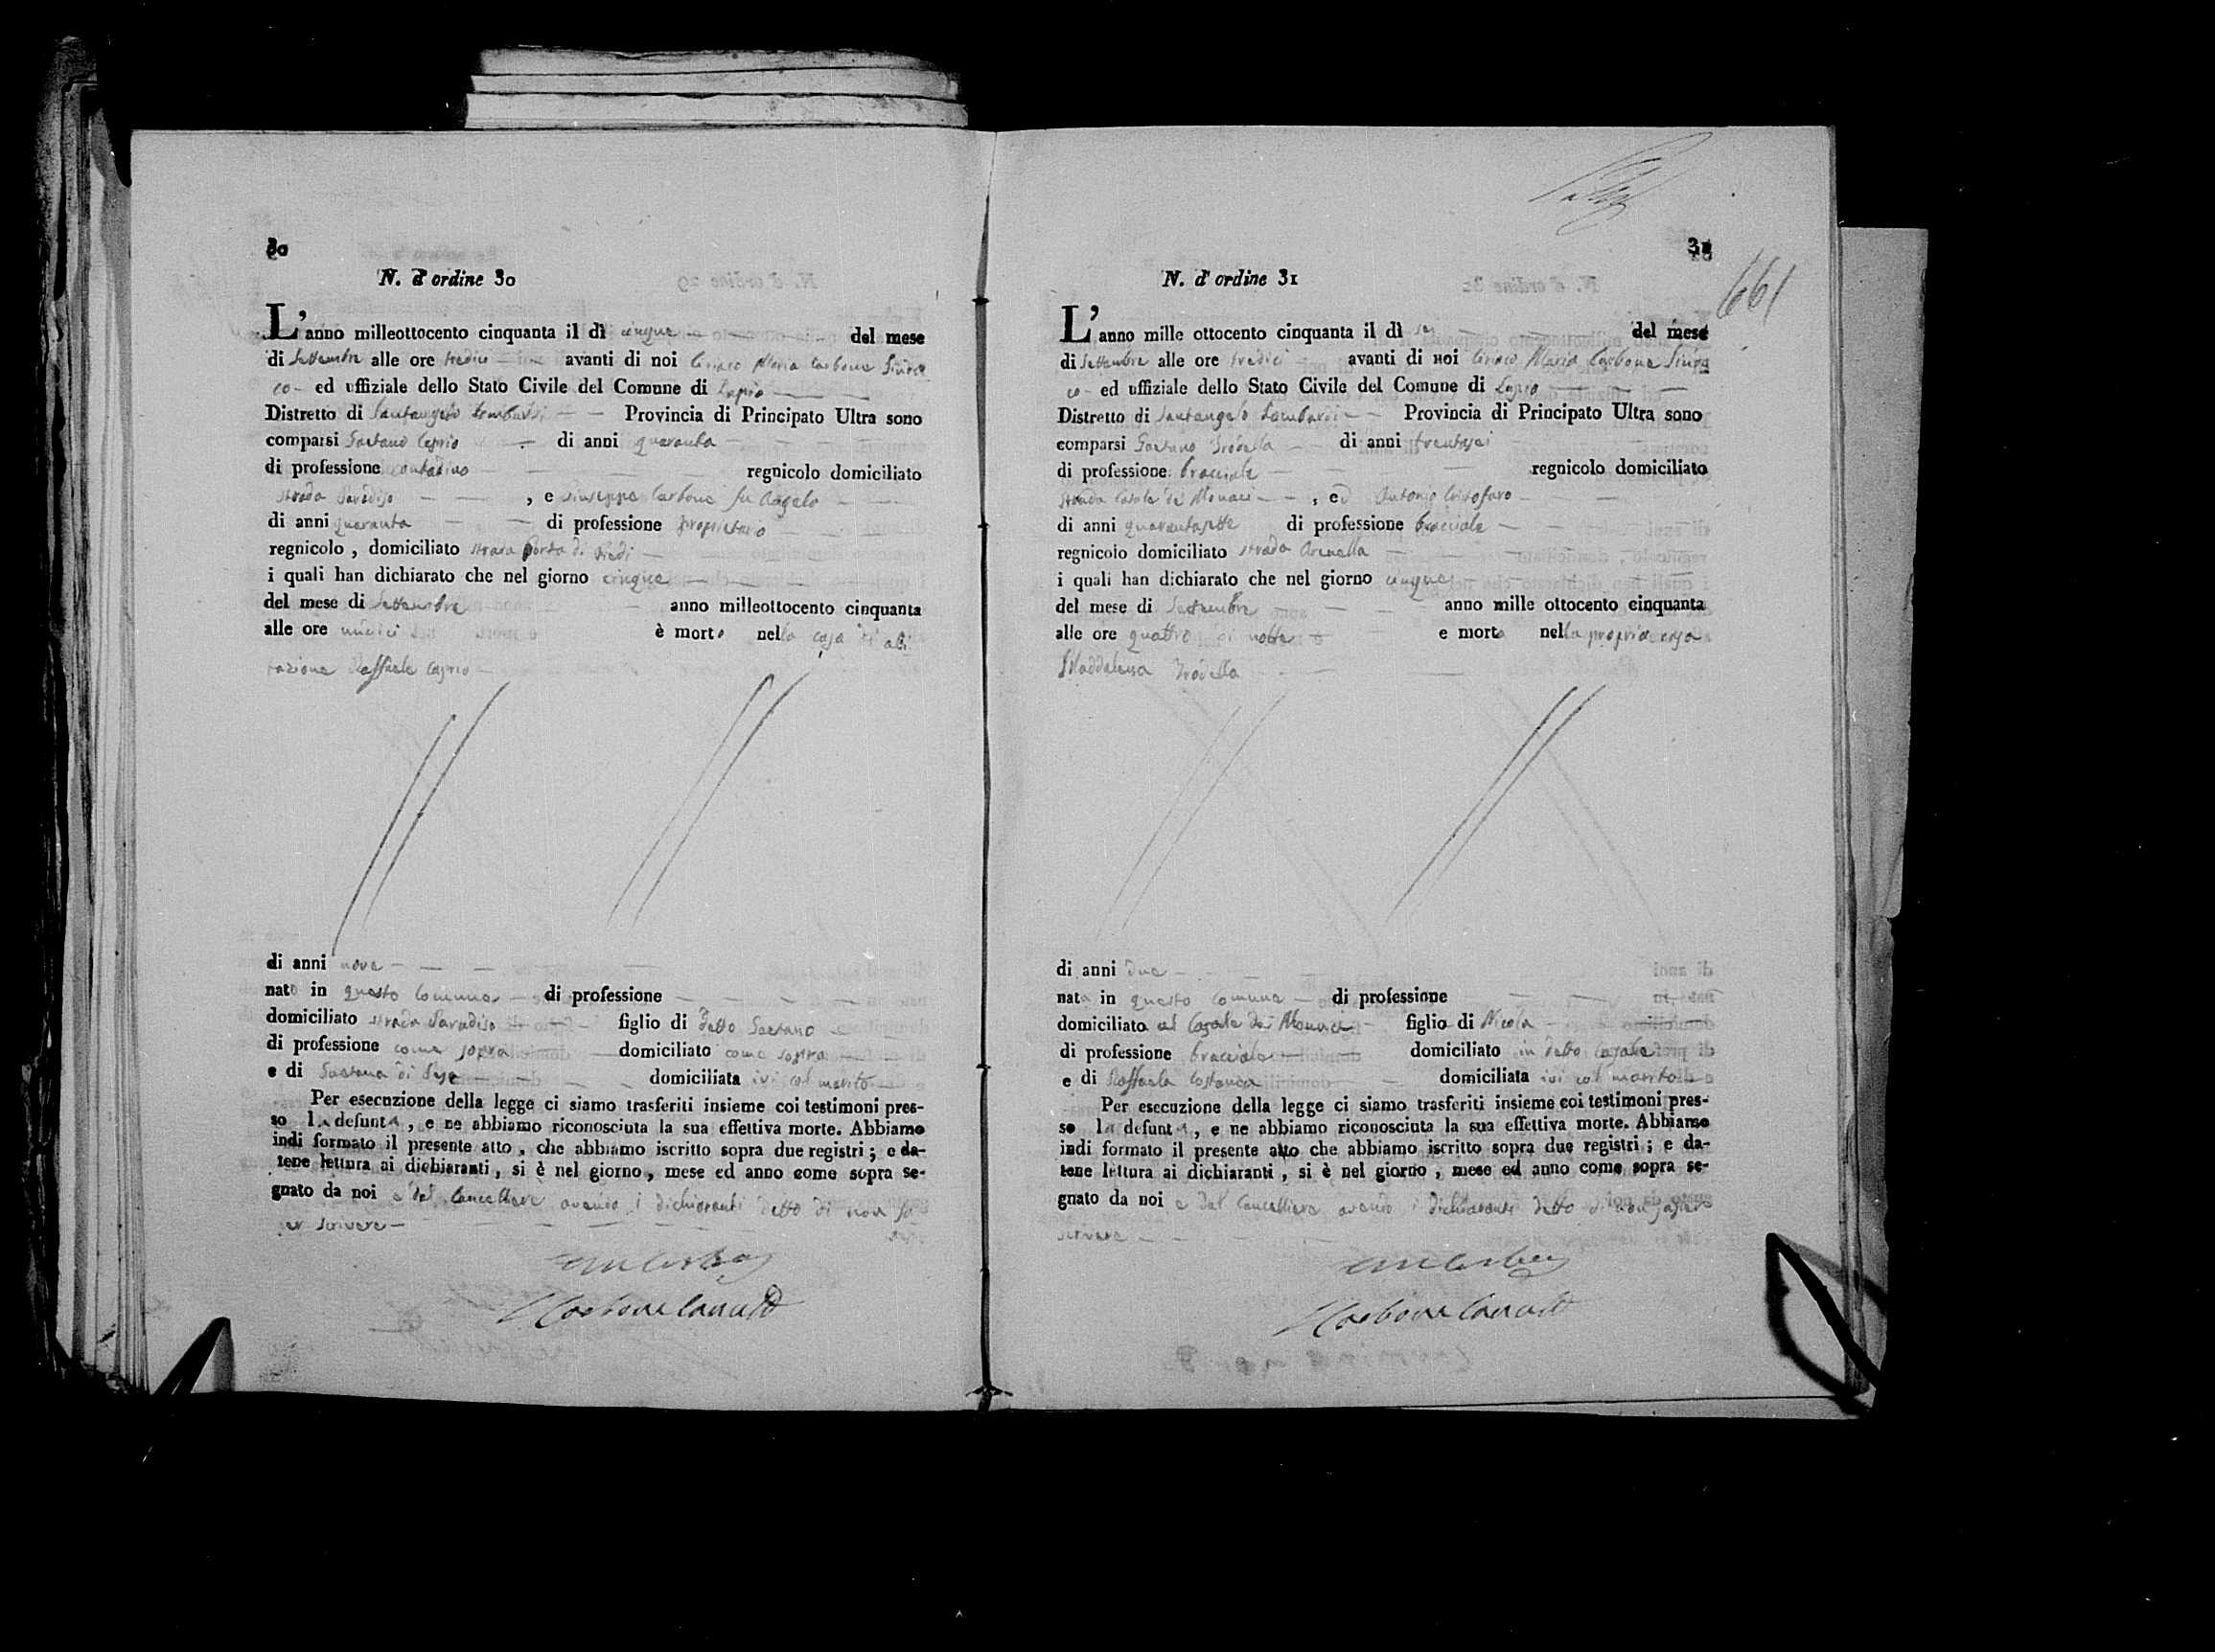 30
N. d'ordine 30
L'anno milleottocento cinquanta il dì cinque del mese
di Settembre alle ore tredici avanti di noi Ciriaco Maria Carbone Sinda
co ed uffiziale dello Stato Civile del Comune di Lapio
Distretto di Santangelo Lombardi Provincia di Principato Ultra sono
comparsi Gaetano Caprio di anni quaranta
di professione contadino regnicolo domiciliato
strada Paradiso , e Giuseppe Carbone fu Angelo
di anni quaranta di professione proprietario
regnicolo , domiciliato strada Porta di Piedi
i quali han dichiarato che nel giorno cinque
del mese di Settembre anno milleottocento cinquanta
alle ore undici è morto nella casa di abi
tazione Raffaele Caprio
di anni nove
nato in questo Comune di professione
domiciliato strada Paradiso figlio di detto Gaetano
di professione come sopra domiciliato come sopra
e di Gaetana di domiciliata ivi col marito
Per esecuzione della legge ci siamo trasferiti insieme coi testimoni pres-
so la defunta , e ne abbiamo riconosciuta la sua effettiva morte. Abbiamo
indi formato il presente atto , che abbiamo iscritto sopra due registri ; e da-
tene lettura ai dichiaranti , si è nel giorno , mese ed anno come sopra se-
gnato da noi e dal Cancelliere avendo i dichiaranti detto di non sa
per scrivere
Carbone
31
661
N. d'ordine 31
L'anno mille ottocento cinquanta il dì sei del mese
di Settembre alle ore tredici avanti di noi Ciriaco Maria Carbone Sinda
co ed uffiziale dello Stato Civile del Comune di Lapio
Distretto di Santangelo Lombardi Provincia di Principato Ultra sono
comparsi Gaetano di anni trentasei
di professione bracciale regnicolo domiciliato
strada Casale de' Monaci , ed Antonio Cristofaro
di anni quarantasette di professione bracciale
regnicolo domiciliato strada Arenella
i quali han dichiarato che nel giorno cinque
del mese di Settembre anno mille ottocento cinquanta
alle ore quattro di notte e morta nella propria casa
Maddalena
di anni due
nata in questo Comune di professione
domiciliata al Casale de' Monaci figlio di Nicola
di professione bracciale domiciliato in detto Casale
e di Raffaela Costanza domiciliata ivi col marito
Per esecuzione della legge ci siamo trasferiti insieme coi testimoni pres-
so la defunta , e ne abbiamo riconosciuta la sua effettiva morte. Abbiamo
indi formato il presente atto che abbiamo iscritto sopra due registri ; e da-
tene lettura ai dichiaranti , si è nel giorno , mese ed anno come sopra se-
gnato da noi e dal Cancelliere avendo i dichiaranti detto di non sapere
scrivere
Carbone